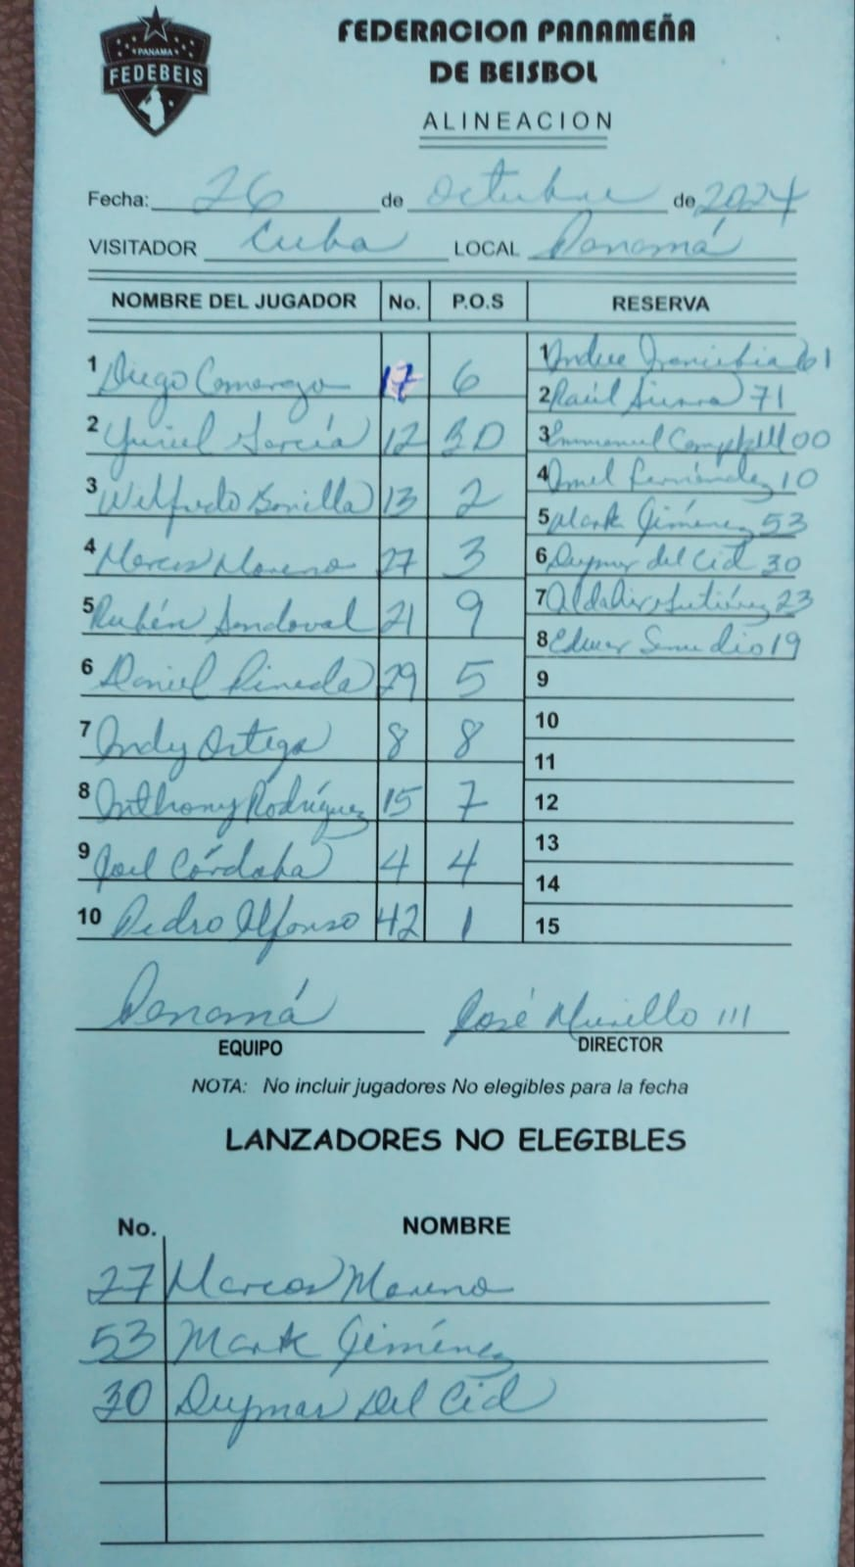 PANAMA
FEDEBEIS
FEDERACION PANAMEÑA
DE BEISBOL
ALINEACION
Fecha: 26 de octubre de 2024
VISITADOR Cuba LOCAL Panamá
NOMBRE DEL JUGADOR No. P.O.S RESERVA
1 Diego Camargo 17 6
2 Yuriel García 12 BD
3 Wilfredo Bonilla 13 2
4 Marcos Moreno 27 3
5 Rubén Sandoval 21 9
6 Daniel Pineda 29 5
7 Andy Ortega 8 8
8 Anthony Rodríguez 15 7
9 Joel Córdoba 4 4
10 Pedro Alfonso 42 1
1 61
2 Raúl Sierra 71
3 Emmanuel Campbell 00
4 Fernández 10
5 Mark Giménez 53
6 Duymar del Cid 30
7 Aldahir Gutiérrez 23
8 Edwar Samudio 19
9
10
11
12
13
14
15
Panamá José Murillo III
EQUIPO DIRECTOR
NOTA: No incluir jugadores No elegibles para la fecha
LANZADORES NO ELEGIBLES
No. NOMBRE
27 Marcos Moreno
53 Mark Giménez
30 Duymar Del Cid